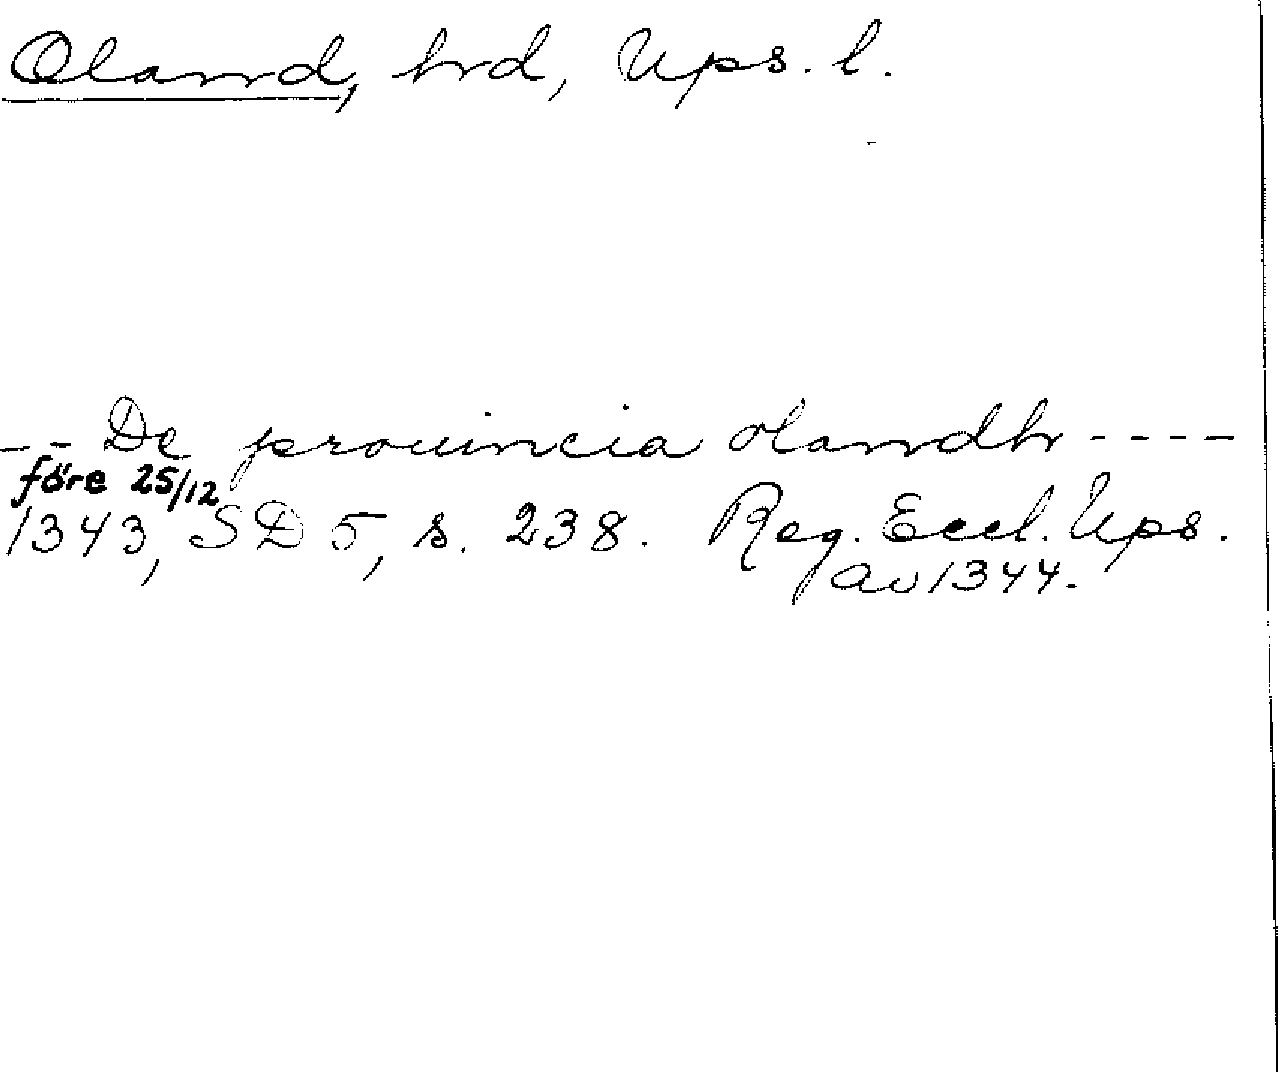 Oland, hrd, Ups. l.
-- De prouincia olandh ----
före 25/12
1343, SD 5, s. 238. Reg. Eccl. Ups.
av 1344.